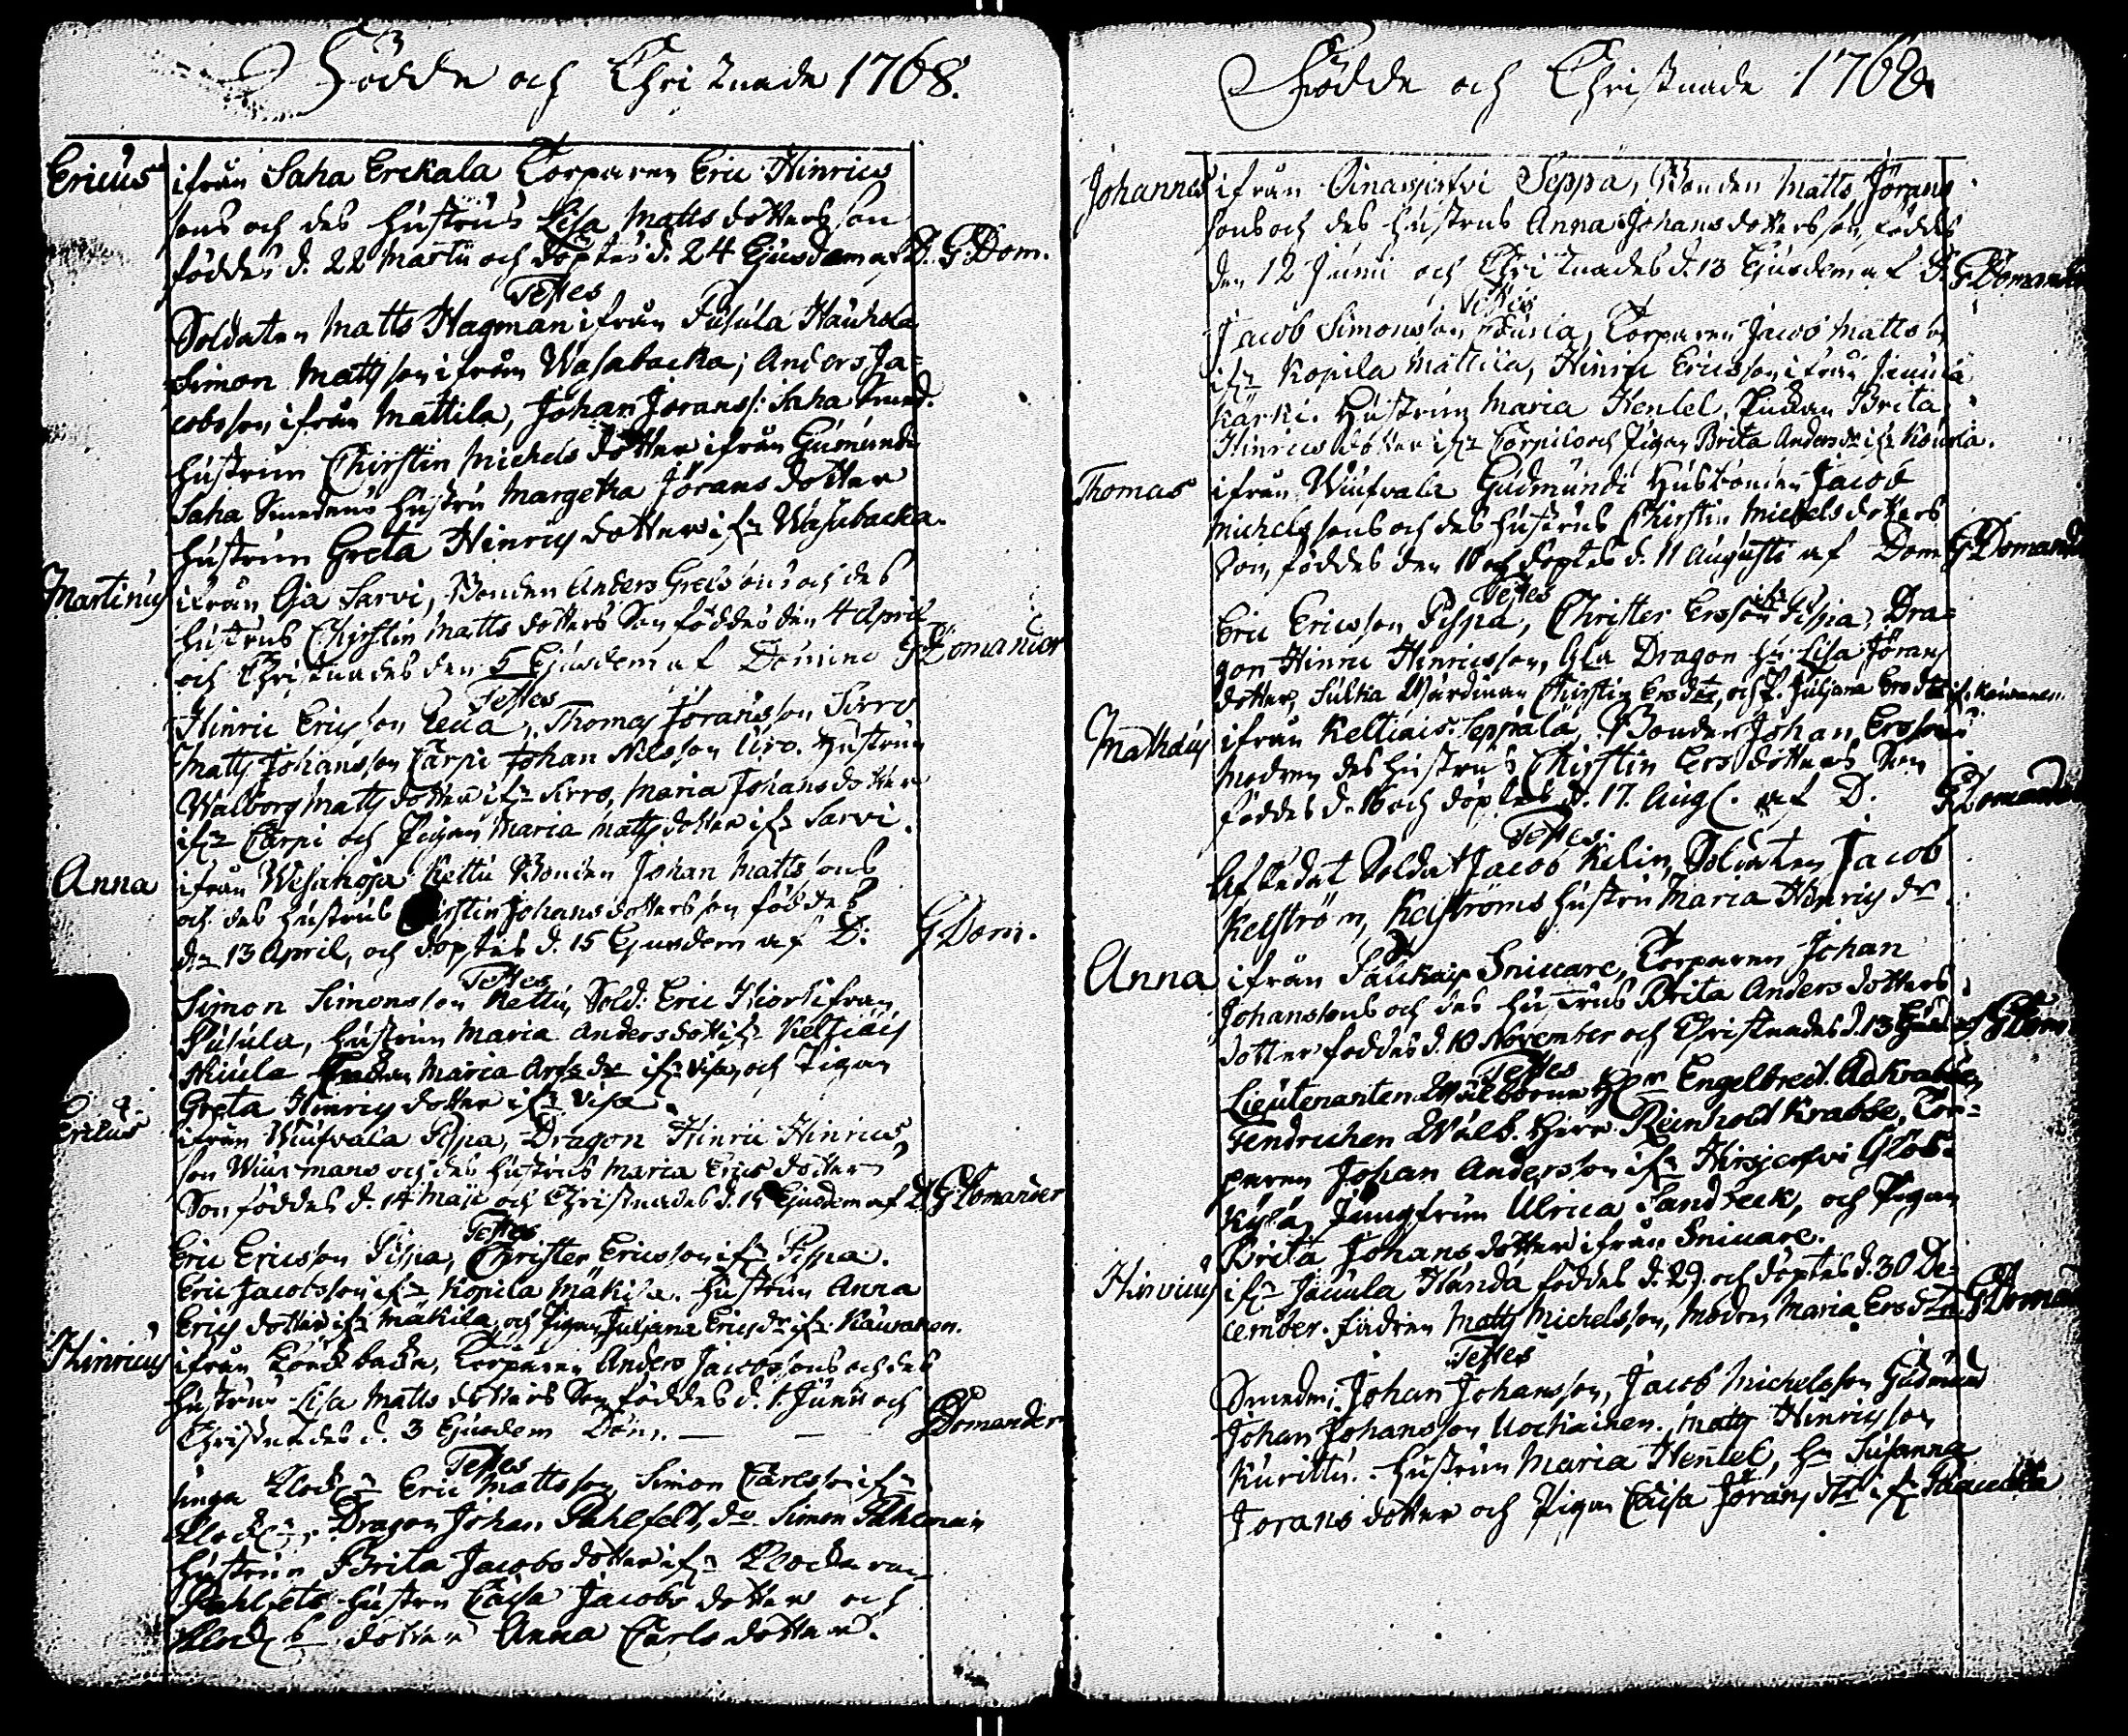 Födde och Christnade 1768.
Ericus ifrån Saha Erckala Torparen Eric Hinrics
sons och des hustrus Lisa Matts dotters son
föddes d. 22 Martii och döptes d. 24 Ejusdem af D. G. Dom.
Testes
Soldaten Matts Hagman ifrån Pusula Hauhola
Simon Mattsson ifrån Wasabacka; Anders Ja=
cobsson ifrån Mattila, Johan Joranss: Saha Smed.
hustrun Chirstin Michels dotter ifrån Gumundi
Saha Smedens hustru Margetha Jörans dotter
hustrun Greta Hinrics dotter ifrn Wasabacka.
Martinus ifrån Oja Sarvi, Bonden Anders Grelsons och des
hustrus Chirstin Matts dotters Son föddes den 4 April
och Christnades den 5 Ejusdem af Domino G Domander
Testes
Hinric Ericsson, Thomas Joransson Sirro
Matts Johansson Carpi Johan Nilsson Uro. Hustrun
Walborg Matts dotter ifrn Sirro, Maria Johans dotter
ifrn Carpi och Pigan Maria Matts dotter ifrn Sarvi.
Anna ifrån Wesakoja Kettu Bonden Johan Matts sons
och des hustrus Chirstin Johans dotters son föddes
den 13 April, och döptes d. 15 Ejusdem af D: G Dom.
Testes
Simon Simonsson Kettu, Sold: Eric Hiort ifran
Pusula, hustrun Maria Anders dotter ifrn Keltiäis
Niuula Maria dr ifrn Visa, och Pigan
Greta Hinrics dotter ifrn Visa.
Ericus ifrån Wiufvala Pispa, Dragon Hinric Hinrics
son Wiurmans och des hustrus Maria Erics dotters
Son föddes d. 14 Maji och Christnades d. 15 Ejusdem af D. G Domander
Testes
Eric Ericsson Pispa, Christer Ericsson ifrn Pispa.
Eric Jacobsson ifrn Kopila Mäkila. Hustrun Anna
Erics dotter ifrn Mäkila, och Pigan Juljana Erics dr ifrn Kauvanen.
Hinricus ifrån backa, Torparen Anders Jacobssons och des
hustrus Lisa Matts dotters Son föddes d. 1. Junii och
Christnades d. 3 Ejusdem Dom. — — G Domander
Testes
Eric Mattsson, Simon Carlsson ifrn
Dragon Johan Pahlfelt, do Simon
hustrun Brita Jacobs dotter ifrn
Pahlfelts hustru Caisa Jacobs dotter och
dotter Anna Carls dotter.
Födde och Christnade 1768.
Johannes ifrån Oinasjerfvi Seppä, Bonden Matts Jörans
sons och des hustrus Anna Johans dotters son, föddes
den 12 Junii och Christnades d. 13 Ejusdem af D. G Domander
Testes
Jacob Simonsson, Torparen Jacob Mattson
ifrn Kopila Mattila, Hinric Ericsson ifrån
Kärki. Hustrun Maria Hentel, Brita
Hinrics dotter ifrn Torpilo och Pigan Brita Anders dr ifrn Kourla.
Thomas ifrån Wiufvala Gudmundi Husbonden Jacob
Michelssons och des hustrus Chirstin Michels dotters
Son, föddes den 10 och döptes d. 11 Augusti af Dom G Domander
Testes
Eric Ericsson Pispa, Christer Ersson ifrn Pispa, Dra=
gon Hinric Hinricsson, Dragon hu: Lisa Jörans
dotter, Chirstin Ers dtr, och P. Juljana Ers dtr if. Kauvanen.
Mathäus ifrån Keltiäis Seppälä, Bonden Johan Ersson
modren des hustrus Chirstin Ers dotters Son
föddes d. 16 och döptes d. 17. Aug. af D. G Domander
Testes.
Afskedat Soldat Jacob Kelin, Soldaten Jacob
Kelström, Kelströms hustru Maria Hinrics dr
Anna ifrån Saukois Sniccare, Torparen Johan
Johanssons och des hustrus Brita Anders dotters
dotter foddes d. 10 November och Christnades d. 13 Ejusd af G Dom
Testes
Lieutenanten Wälborne Herr Engelbrect. Ad Krabbe,
Fendrichen Wälb. Herr Reinhold Krabbe, Tor=
paren Johan Andersson ifrn Hirsjerfvi Glös=
kylä, Jungfrun Ulrica Sandbeck, och Pigan
Brita Johans dotter ifrån Sniccare.
Hinricus ifrn Jauula Handa föddes d. 29. och döptes d. 30 De=
cember. fadren Matts Michelsson, Modren Maria Ers dtr G Domand
Testes
Smeden Johan Johansson, Jacob Michelsson Gudmund
Johan Johansson Uochainen. Matts Hinricsson
Kurittu. Hustrun Maria Hentel, Hu Susanna
Jorans dotter och Pigan Caisa Jörans dtr ifrn